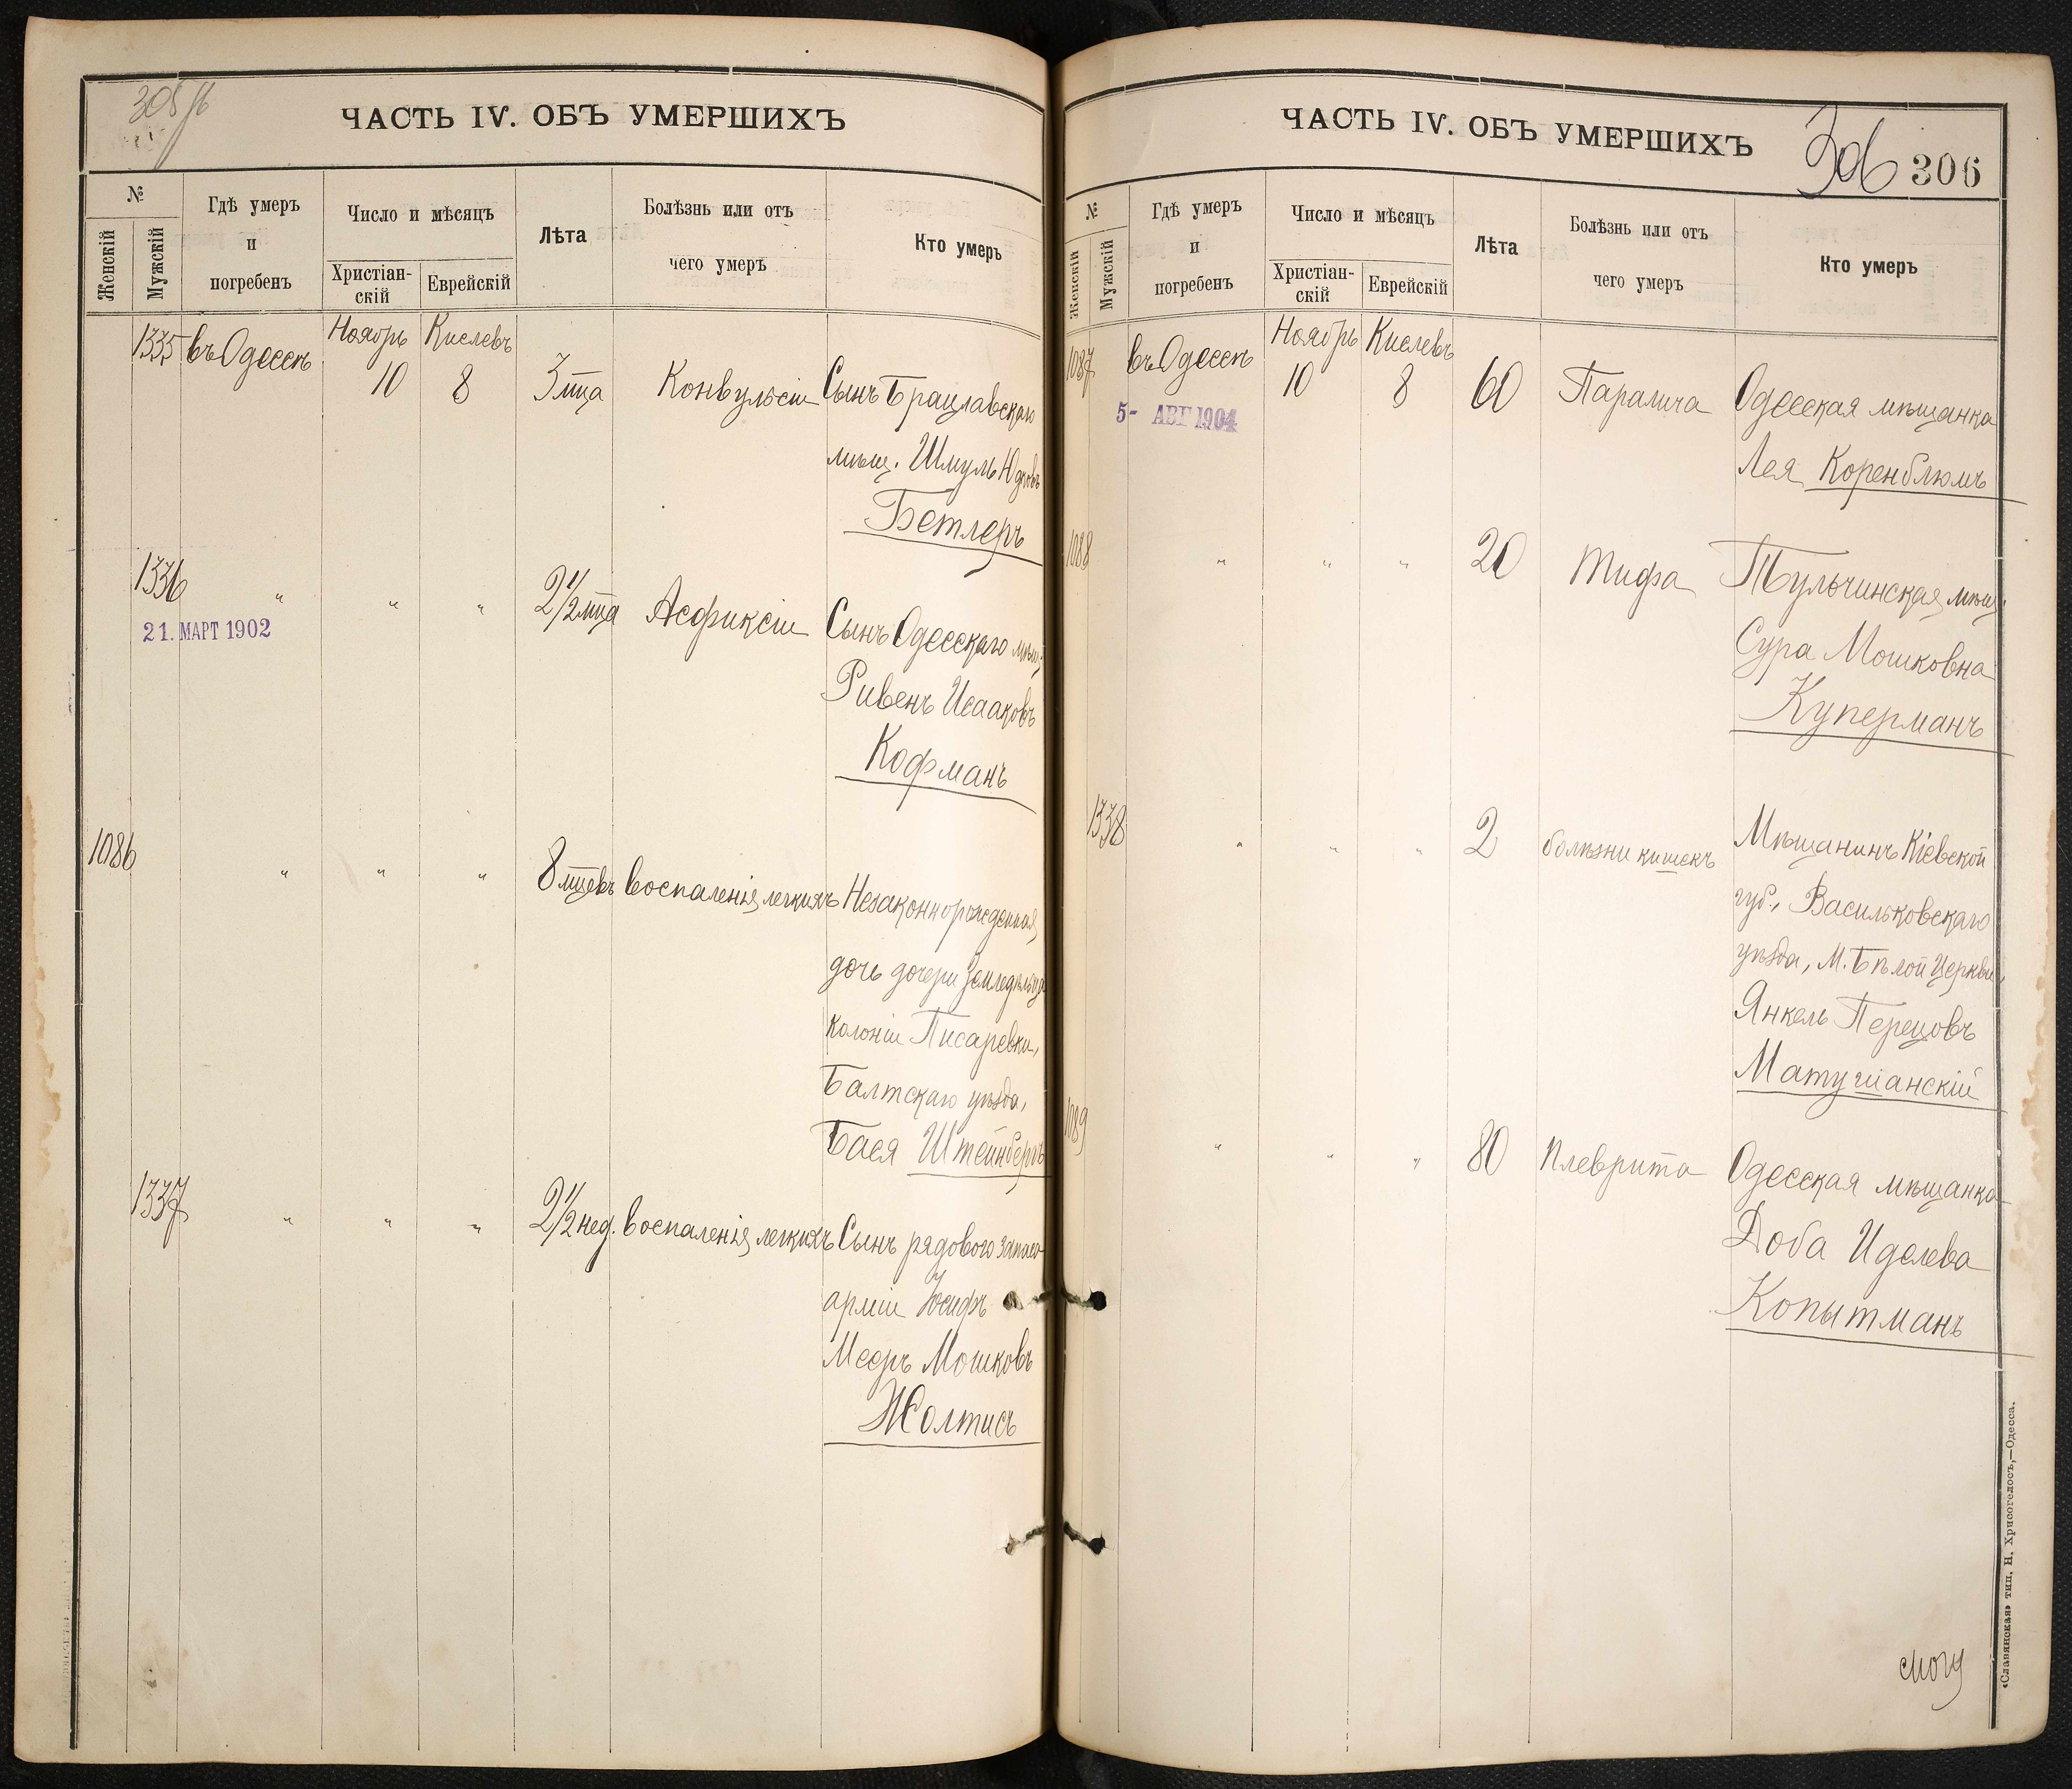 ЧАСТЬ IV. ОБЪ УМЕРШИХЪ
№
Женскій
Мужскій
Гдѣ умеръ
и
погребенъ
Число и мѣсяцъ
Христіан-
скій
Еврейскій
Лѣта
Болѣзнь или отъ
чего умеръ
Кто умеръ
1335 въ Одессѣ Ноябрь Кислевъ
10 8 3 мца Конвульсіи Сынъ Брацлавскаго
мѣщ. Шмуль Юдковъ
Бетлеръ
1336 " " " 2 1/2 мца Асфиксіи Сынъ Одесскаго мѣщ.
21. МАРТ 1902
Ривенъ Исааковъ
Кофманъ
1086 " " " 8 мцевъ воспаленія легкихъ Незаконнорожденная
дочь дочери земледѣльца
колоніи Писаревки,
Балтскаго уѣзда,
Бася Штейнбергъ
1337 " " " 2 1/2 нед. воспаленія легкихъ Сынъ рядового запаса
арміи Іосифъ
Мееръ Мошковъ
Жолтисъ
ЧАСТЬ IV. ОБЪ УМЕРШИХЪ
306 306
№
Женскій
Мужскій
Гдѣ умеръ
и
погребенъ
Число и мѣсяцъ
Христіан-
скій
Еврейскій
Лѣта
Болѣзнь или отъ
чего умеръ
Кто умеръ
1087 въ Одессѣ Ноябрь Кислевъ
10 8 60 Паралича Одесская мѣщанка
5- АВГ 1904
Лея Коренблюмъ
1088 " " " 20 Тифа Тульчинская мѣщ.
Сура Мошковна
Куперманъ
1338 " " " 2 болѣзни кишекъ Мѣщанинъ Кіевской
губ., Васильковскаго
уѣзда, М. Бѣлой Церкви,
Янкель Перецовъ
Матушанскій
1089 " " " 80 Плеврита Одесская мѣщанка
Доба Иделева
Копытманъ
«Славянская» тип. Н. Хрисогелосъ,—Одесса.